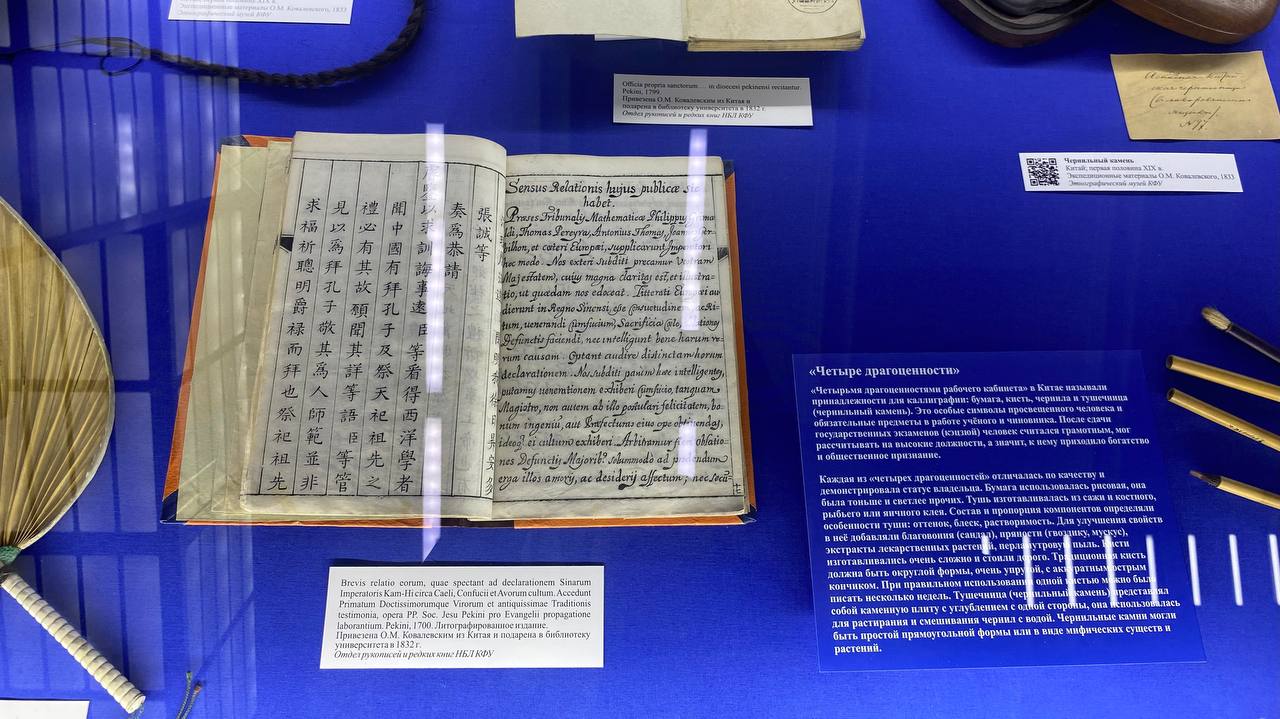 половина XIX в.
Экспедиционные материалы О.М. Ковалевского, 1833
Этнографический музей КФУ
Officia propria sanctorum… in dioecesi pekinensi recitantur.
Pekini, 1799.
Привезена О.М. Ковалевским из Китая и
подарена в библиотеку университета в 1832 г.
Отдел рукописей и редких книг НБЛ КФУ
№97.
Чернильный камень
Китай; первая половина XIX в.
Экспедиционные материалы О.М. Ковалевского, 1833
Этнографический музей КФУ
張誠等
奏為恭請
以求訓誨事遠臣等看得西洋學者
聞中國有拜孔子及祭天祀祖先之
禮必有其故願聞其詳等語臣等管
見以為拜孔子敬其為人師範並非
求福祈聰明爵祿而拜也祭祀祖先
Sensus Relationis hujus publicæ sic
habet.
Præses Tribunalis Mathematicæ Philippus
di, Thomas Pereyra, Antonius Thomas, Joannes
billon, et cæteri Europæi, supplicarunt Imperatori
hoc modo. Nos exteri subditi precamur Vestram
Majestatem, cujus magna claritas est, et illustra-
tio, ut quædam nos edoceat. Litterati Europæi au
dierunt in Regno Sinensi, esse consuetudinem, ac Ri-
tum, uenerandi Cumfucium, Sacrificia Cœlo,
Defunctis faciendi, nec intelligunt bene harum re-
rum causam. Optant audire distinctam horum
declarationem. Nos subditi parum hæc intelligentes,
putamus uenerationem exhiberi Cumfucio, tanquam
Magistro, non autem ab illo postulari felicitatem, bo-
num ingenium, aut Præfecturas ejus ope obtinendas,
ideoq; ei cultum exhiberi. Arbitramur fieri Oblatio-
nes Defunctis Majorib9 solummodo ad prodendum
erga illos amoris, ac desiderij affectum; nec secu-
Brevis relatio eorum, quae spectant ad declarationem Sinarum
Imperatoris Kam-Hi circa Caeli, Confucii et Avorum cultum. Accedunt
Primatum Doctissimorumque Virorum et antiquissimae Traditionis
testimonia, opera PP. Soc. Jesu Pekini pro Evangelii propagatione
laborantium. Pekini, 1700. Литографированное издание.
Привезена О.М. Ковалевским из Китая и подарена в библиотеку
университета в 1832 г.
Отдел рукописей и редких книг НБЛ КФУ
«Четыре драгоценности»
«Четырьмя драгоценностями рабочего кабинета» в Китае называли
принадлежности для каллиграфии: бумага, кисть, чернила и тушечница
(чернильный камень). Это особые символы просвещенного человека и
обязательные предметы в работе учёного и чиновника. После сдачи
государственных экзаменов (кэцзюй) человек считался грамотным, мог
рассчитывать на высокие должности, а значит, к нему приходило богатство
и общественное признание.
Каждая из «четырех драгоценностей» отличалась по качеству и
демонстрировала статус владельца. Бумага использовалась рисовая, она
была тоньше и светлее прочих. Тушь изготавливалась из сажи и костного,
рыбьего или яичного клея. Состав и пропорция компонентов определяли
особенности туши: оттенок, блеск, растворимость. Для улучшения свойств
в неё добавляли благовония (сандал), пряности (гвоздику, мускус),
экстракты лекарственных растений, перламутровую пыль. Кисти
изготавливались очень сложно и стоили дорого. Традиционная кисть
должна быть округлой формы, очень упругой, с аккуратным острым
кончиком. При правильном использовании одной кистью можно было
писать несколько недель. Тушечница (чернильный камень) представлял
собой каменную плиту с углублением с одной стороны, она использовалась
для растирания и смешивания чернил с водой. Чернильные камни могли
быть простой прямоугольной формы или в виде мифических существ и
растений.